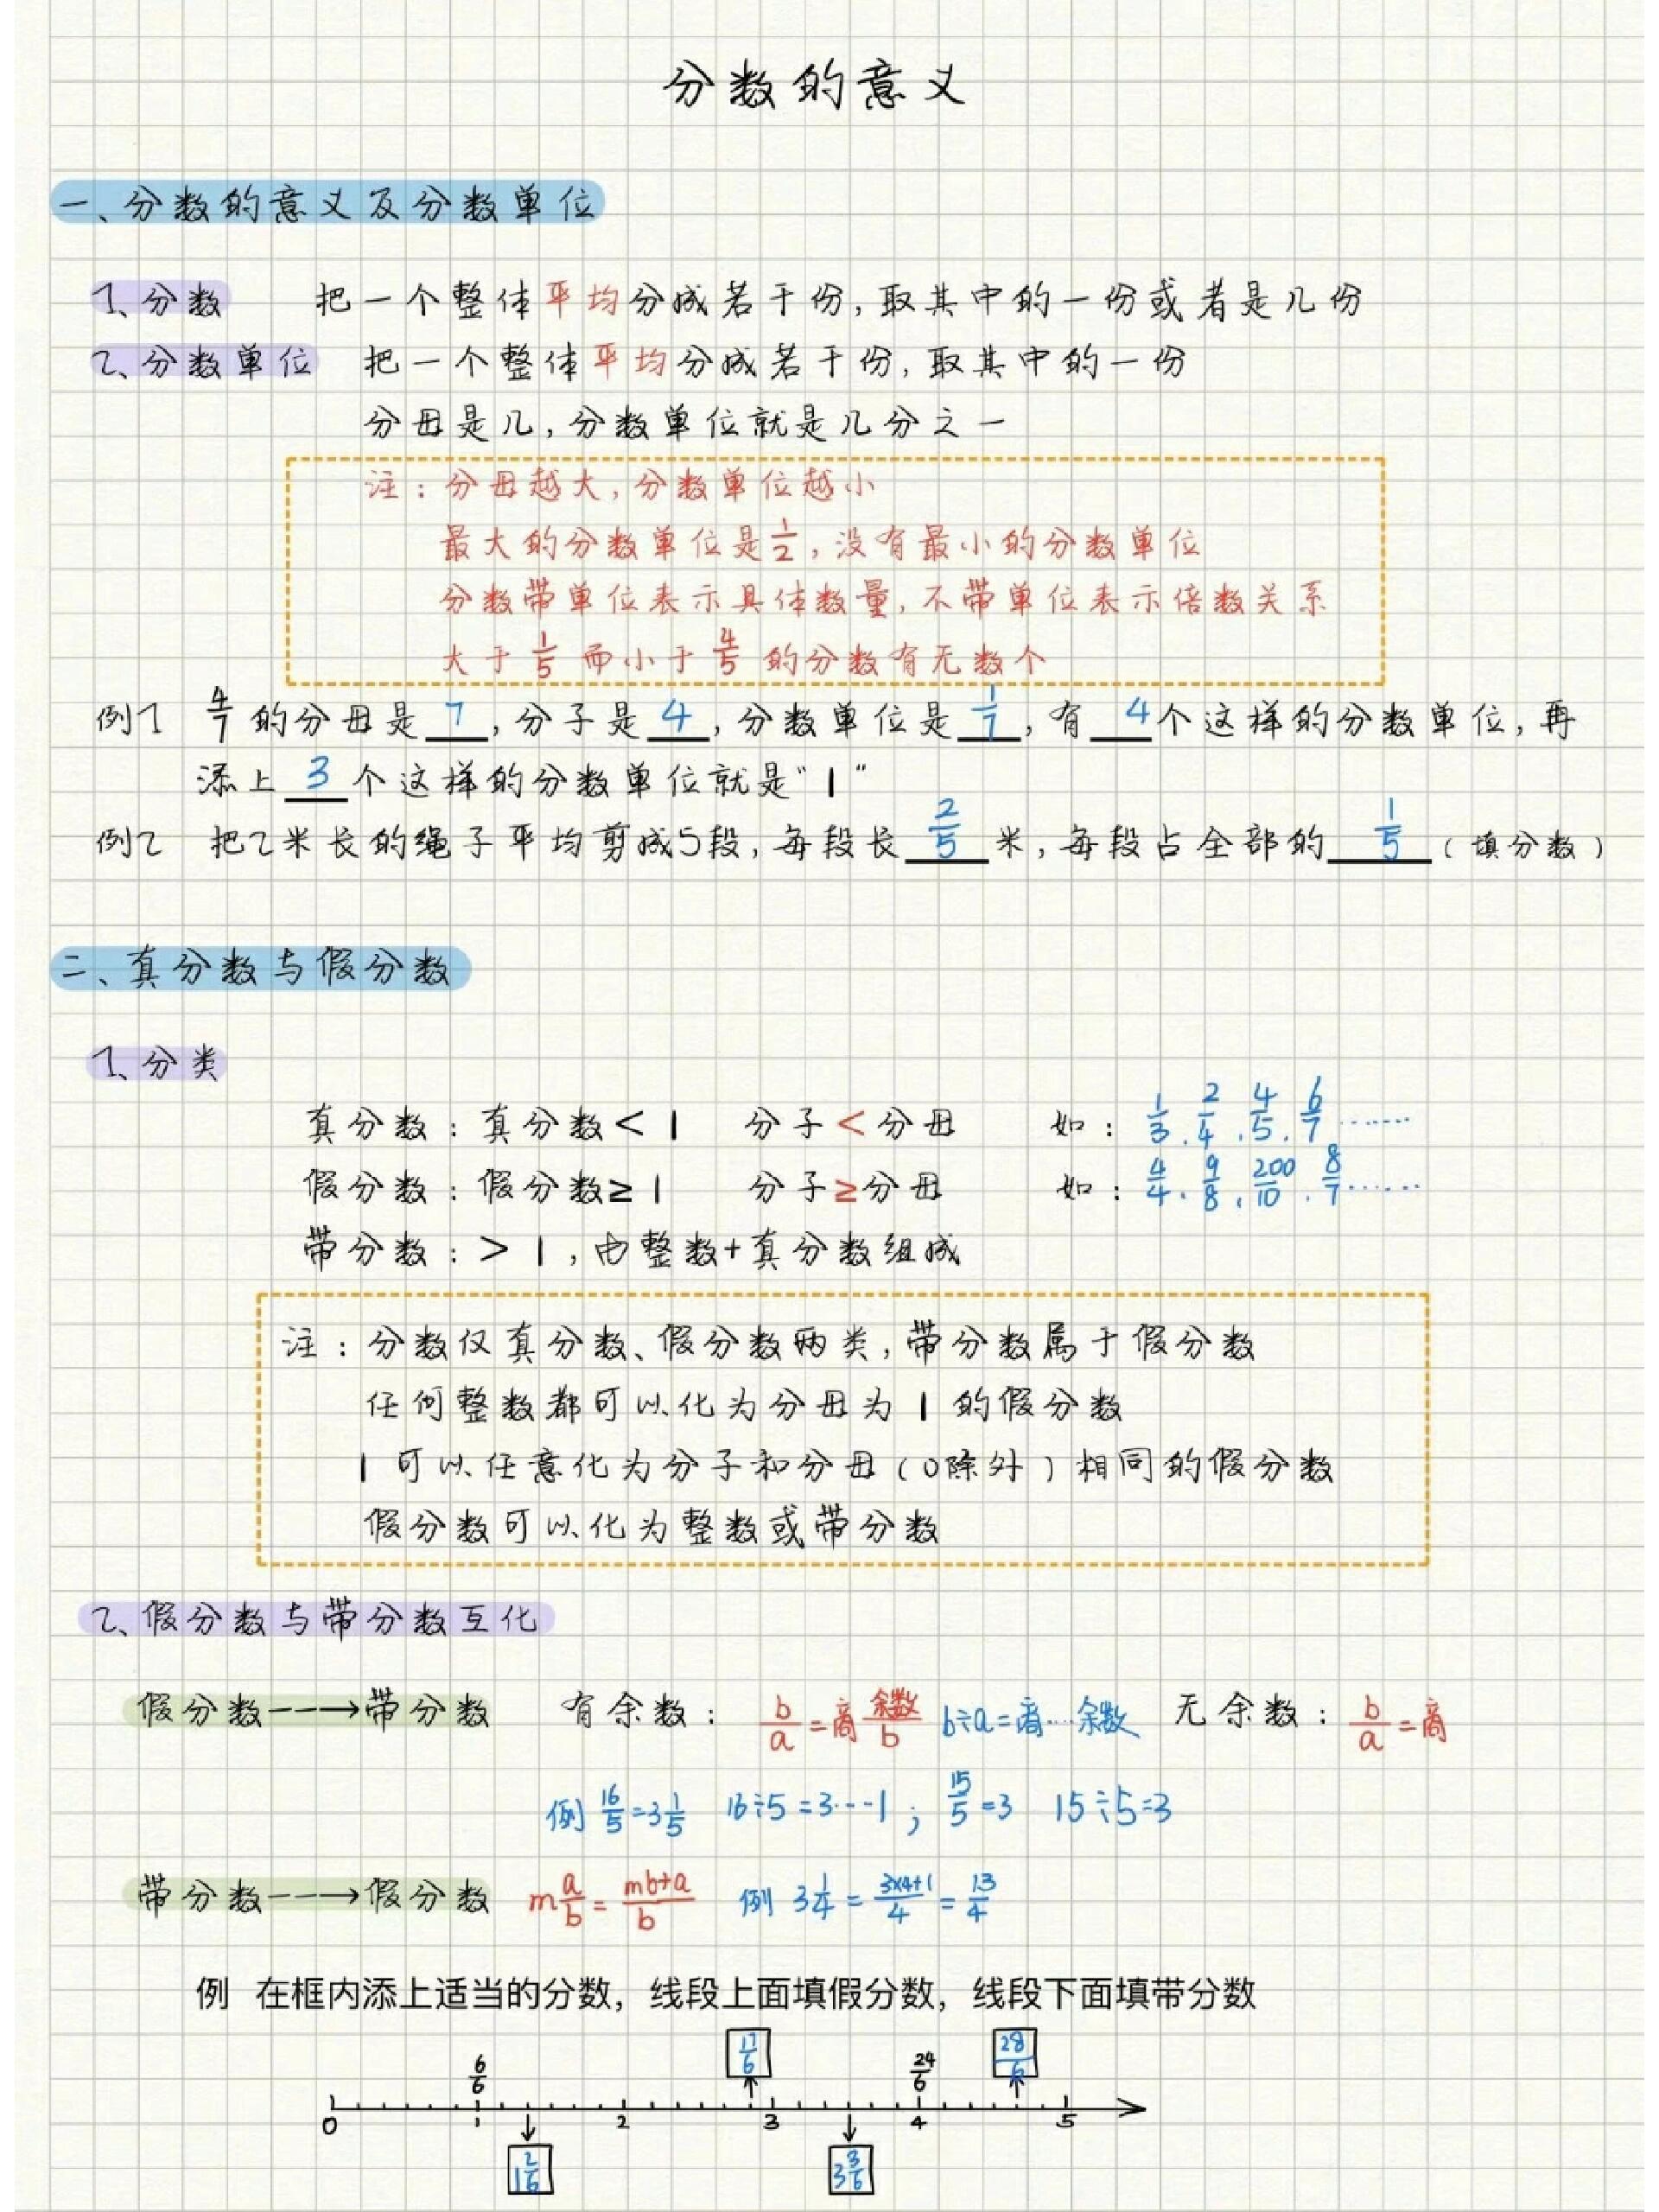 分数的意义
一、分数的意义及分数单位
1、分数 把一个整体平均分成若干份,取其中的一份或者是几份
2、分数单位 把一个整体平均分成若干份,取其中的一份
分母是几,分数单位就是几分之一
注:分母越大,分数单位越小
最大的分数单位是1/2,没有最小的分数单位
分数带单位表示具体数量,不带单位表示倍数关系
大于1/5而小于4/5的分数有无数个
例1 4/7的分母是7,分子是4,分数单位是1/7,有4个这样的分数单位,再
添上3个这样的分数单位就是"1"
例2 把2米长的绳子平均剪成5段,每段长2/5米,每段占全部的1/5(填分数)
二、真分数与假分数
1、分类
真分数:真分数<1 分子<分母 如:1/3、2/4、4/5、6/7……
假分数:假分数≥1 分子≥分母 如:4/4、9/8、200/10、8/7……
带分数:>1,由整数+真分数组成
注:分数仅真分数、假分数两类,带分数属于假分数
任何整数都可以化为分母为1的假分数
1可以任意化为分子和分母(0除外)相同的假分数
假分数可以化为整数或带分数
2、假分数与带分数互化
假分数--→带分数 有余数: b/a=商 余数/b b÷a=商…余数 无余数: b/a=商
例 16/5=3 1/5 16÷5=3---1; 15/5=3 15÷5=3
带分数--→假分数 m a/b = (mb+a)/b 例 3 1/4 = (3×4+1)/4 = 13/4
例 在框内添上适当的分数，线段上面填假分数，线段下面填带分数
6/6 17/6 24/6 28/6
0 1 2 3 4 5
1 2/6 3 3/6